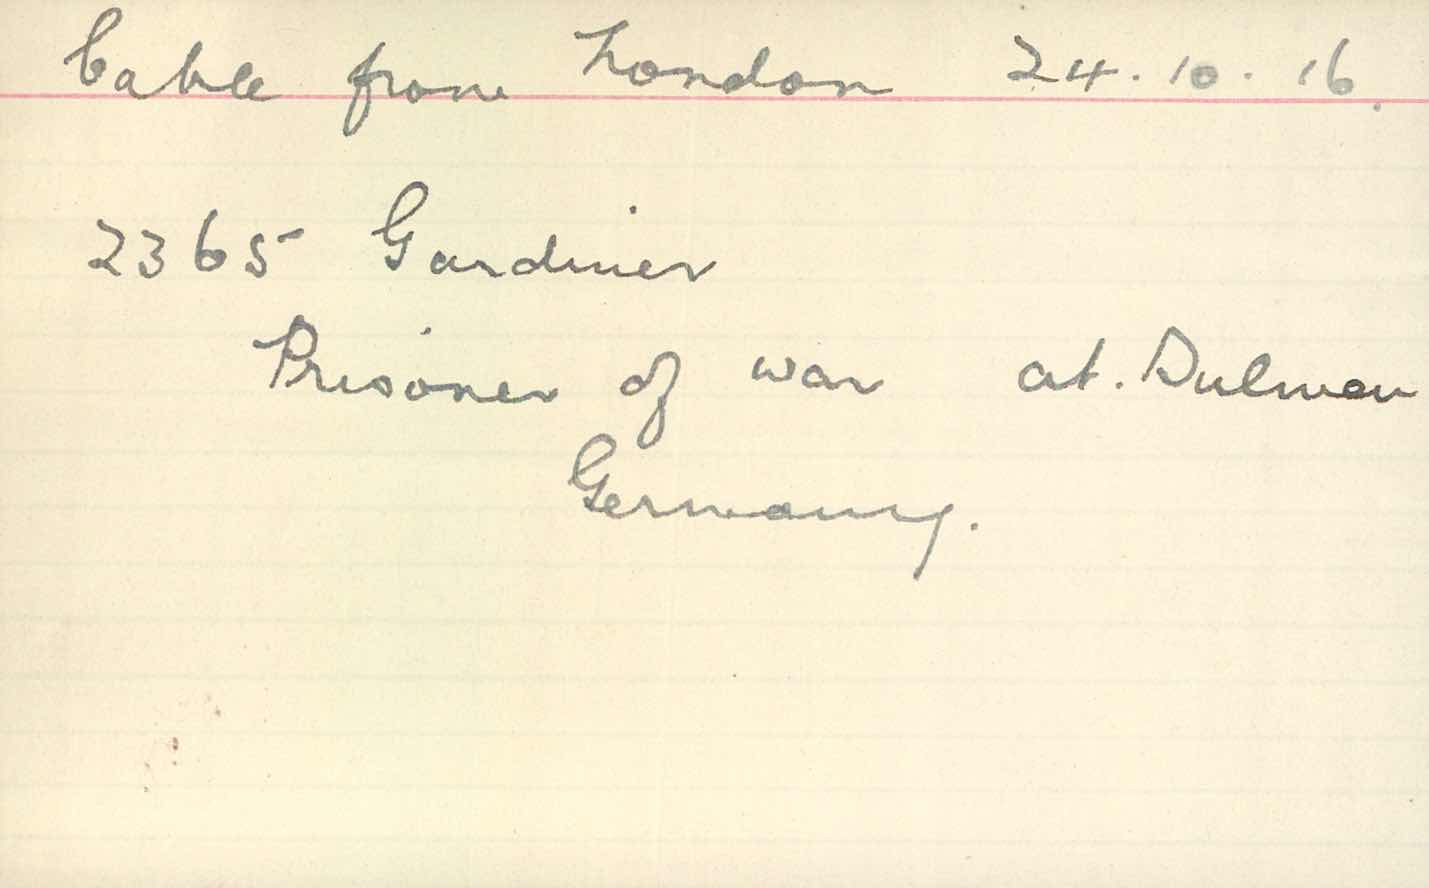 Cable from London 24.10.16.
2365 Gardiner
Prisoner of war at. Dulmen
Germany.